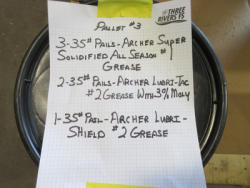 #THREE
RIVERS FS
PALLET #3
3-35# PAILS-ARCHER SUPER
SOLIDIFIED ALL SEASON #
GREASE
2-35# PAILS-ARCHER LUBRI-TAC
#2 GREASE WITH 3% MOLY
1-35# PAIL-ARCHER LUBRI-
SHIELD #2 GREASE